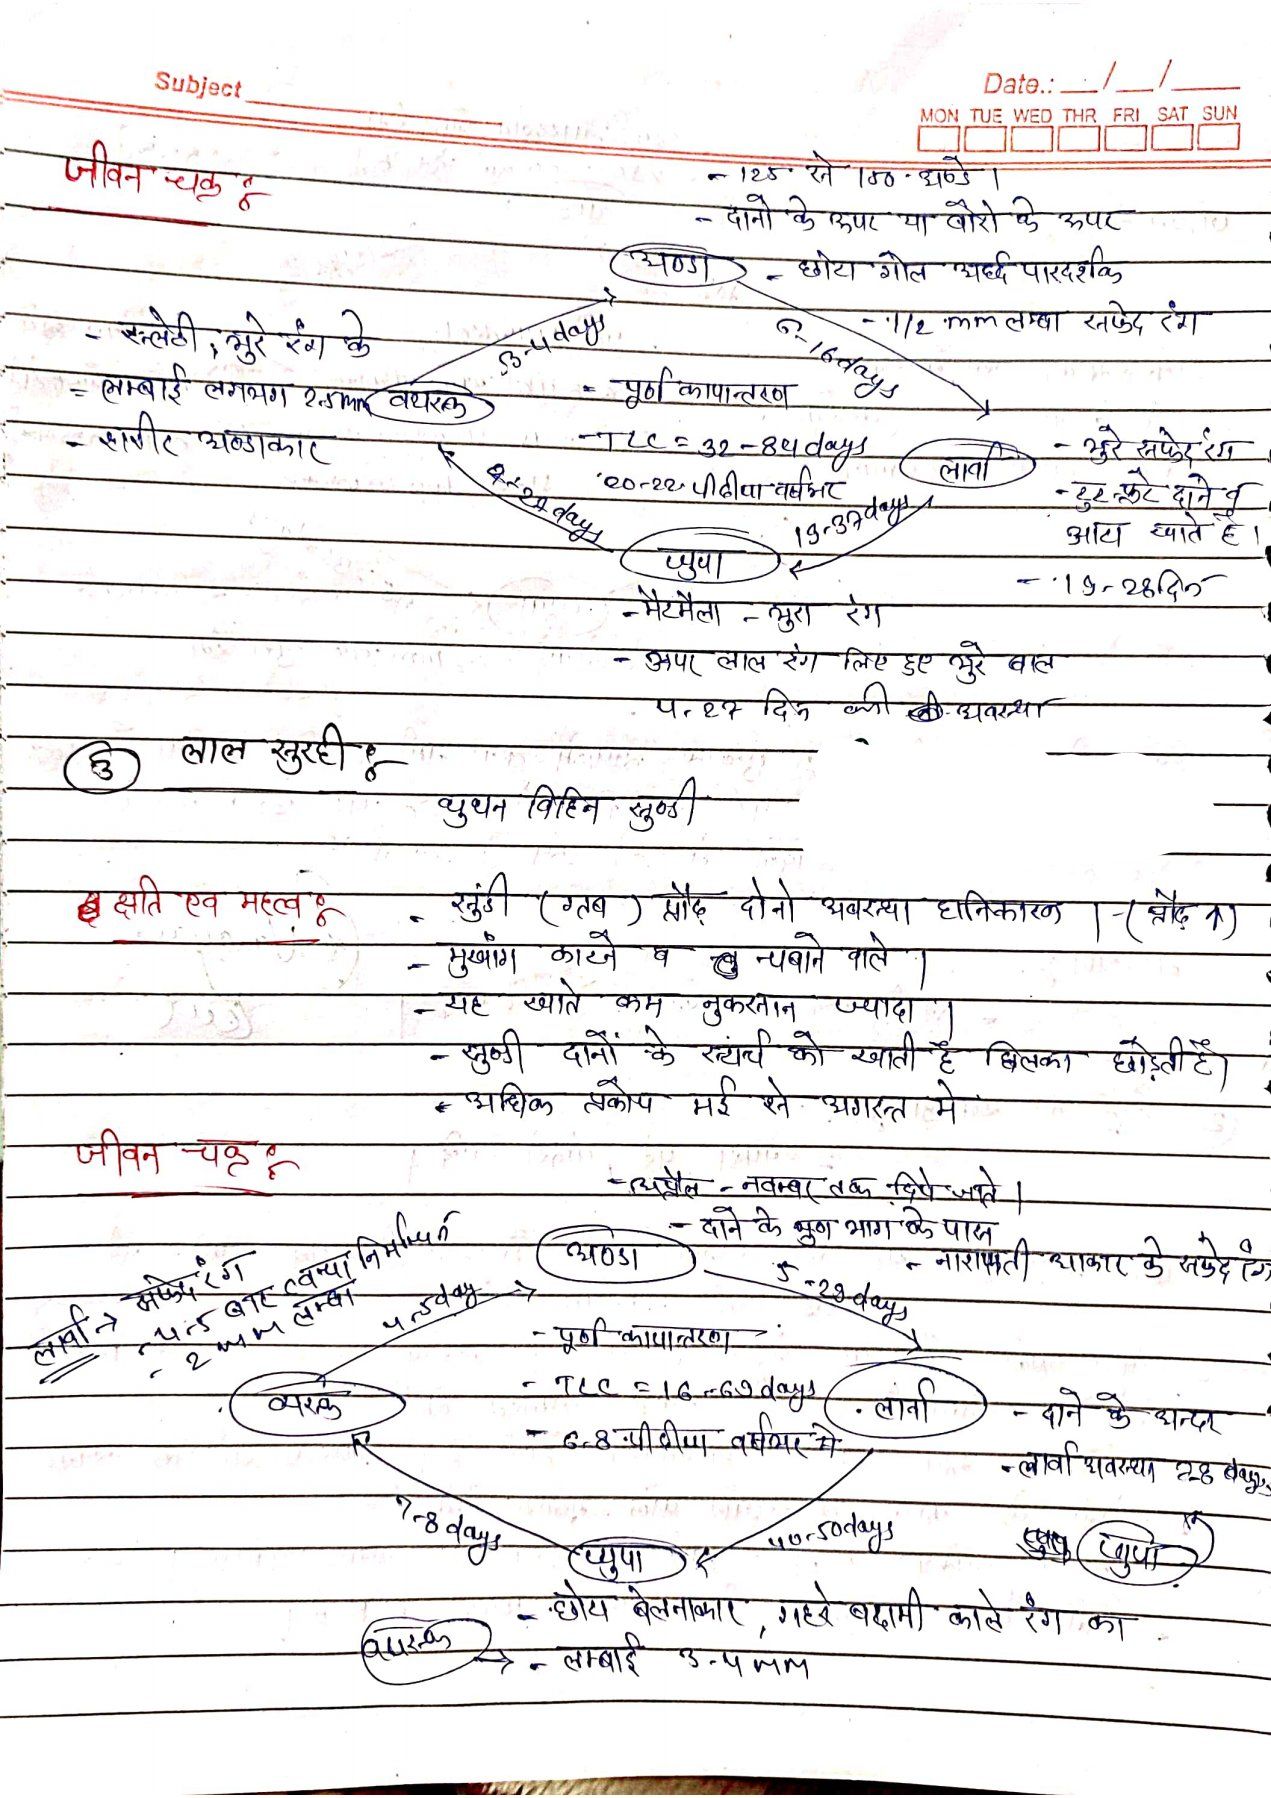 Subject
Date.: __/__/____
MON TUE WED THR FRI SAT SUN
जीवन चक्र :
- 125 से 150 अण्डे |
- दानो के ऊपर या बोरो के ऊपर
अण्डा - छोटा गोल अर्द्ध पारदर्शक
- 1/2 mm लम्बा सफेद रंग
- स्लेटी, भुरे रंग के
- लम्बाई लगभग 2.5mm वयस्क
- शरीर अण्डाकार
3-4 days
6-16 days
- पूर्ण कायान्तरण
- TLC = 32-84 days
20-22 पीढीया वर्षभर
लार्वा - भुरे सफेद रंग
- टुटे-फुटे दाने व
आटा खाते है |
- 19-28 दिन
19-37 days
days
प्युपा
- मटमैला - भुरा रंग
- ऊपर लाल रंग लिए हुए भुरे बाल
4-27 दिन की अवस्था
लाल सुरही :
थुथन विहिन सुण्डी
क्षति एव महत्व :
- सुंडी (ग्रब) प्रौढ़ दोनो अवस्था हानिकारक | - (प्रौढ़ ↑)
- मुखांग काटने व चबाने वाले |
- यह खाते कम नुकसान ज्यादा |
- सुण्डी दानों के स्टार्च को खाती है छिलका छोड़ती है |
- अधिक प्रकोप मई से अगस्त मे
जीवन चक्र :
- अप्रैल - नवम्बर तक दिये जाते |
- दाने के भ्रुण भाग के पास
अण्डा - नाशपाती आकार के सफेद रंग
लार्वा → सफेद रंग
- 4-5 बार त्वचा निर्मोचन
- 2 mm लम्बा
4-5 day
5-29 days
- पूर्ण कायान्तरण
- TLC = 16-69 days
- 6-8 पीढीया वर्षभर मे
वयस्क
लार्वा - दाने के अन्दर
- लार्वा अवस्था 28 days
7-8 days
40-50 days
प्युपा
प्युपा
- छोटा बेलनाकार, गहरे बदामी काले रंग का
वयस्क → - लम्बाई 3-4 mm